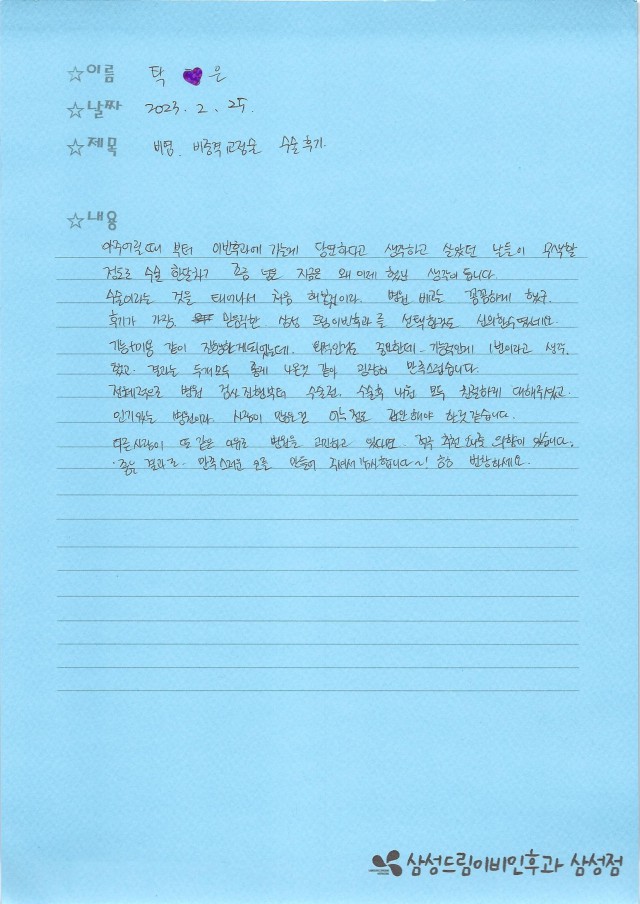 ☆이름 탁 은
☆날짜 2023. 2. 25.
☆제목 비염, 비중격교정술 수술후기.
☆내용
아주어릴때 부터 이빈후과에 가는게 당연하다고 생각하고 살았던 날들이 무색할
정도로 수술 한달차가 조금 넘은 지금은 왜 이제 했나 생각이 듭니다.
수술이라는 것을 태어나서 처음 해본것이라. 병원 비교를 꼼꼼하게 했고.
후기가 가장. 믿음직한 삼성 드림이빈후과를 선택할정도 신뢰할수있었네요.
기능+미용 같이 진행한게되었는데. 중요한데- 기능적인게 1번이라고 생각.
했고. 결과는 두개모두 좋게 나온것 같아 굉장히 만족스럽습니다.
전체적으로 병원 검사 진행부터 수술전. 수술후 내원 모두 친절하게 대해주셨고.
인기있는 병원이라. 사람이 많은건 어느정도 감안해야 할것 같습니다.
다른사람이 또 같은 이유로 병원을 고민하고 있다면. 적극 추천 해줄 의향이 있습니다.
좋은 결과로. 만족스러운 코를 만들어 주셔서 감사합니다~! 항상 번창하세요.
삼성드림이비인후과 삼성점